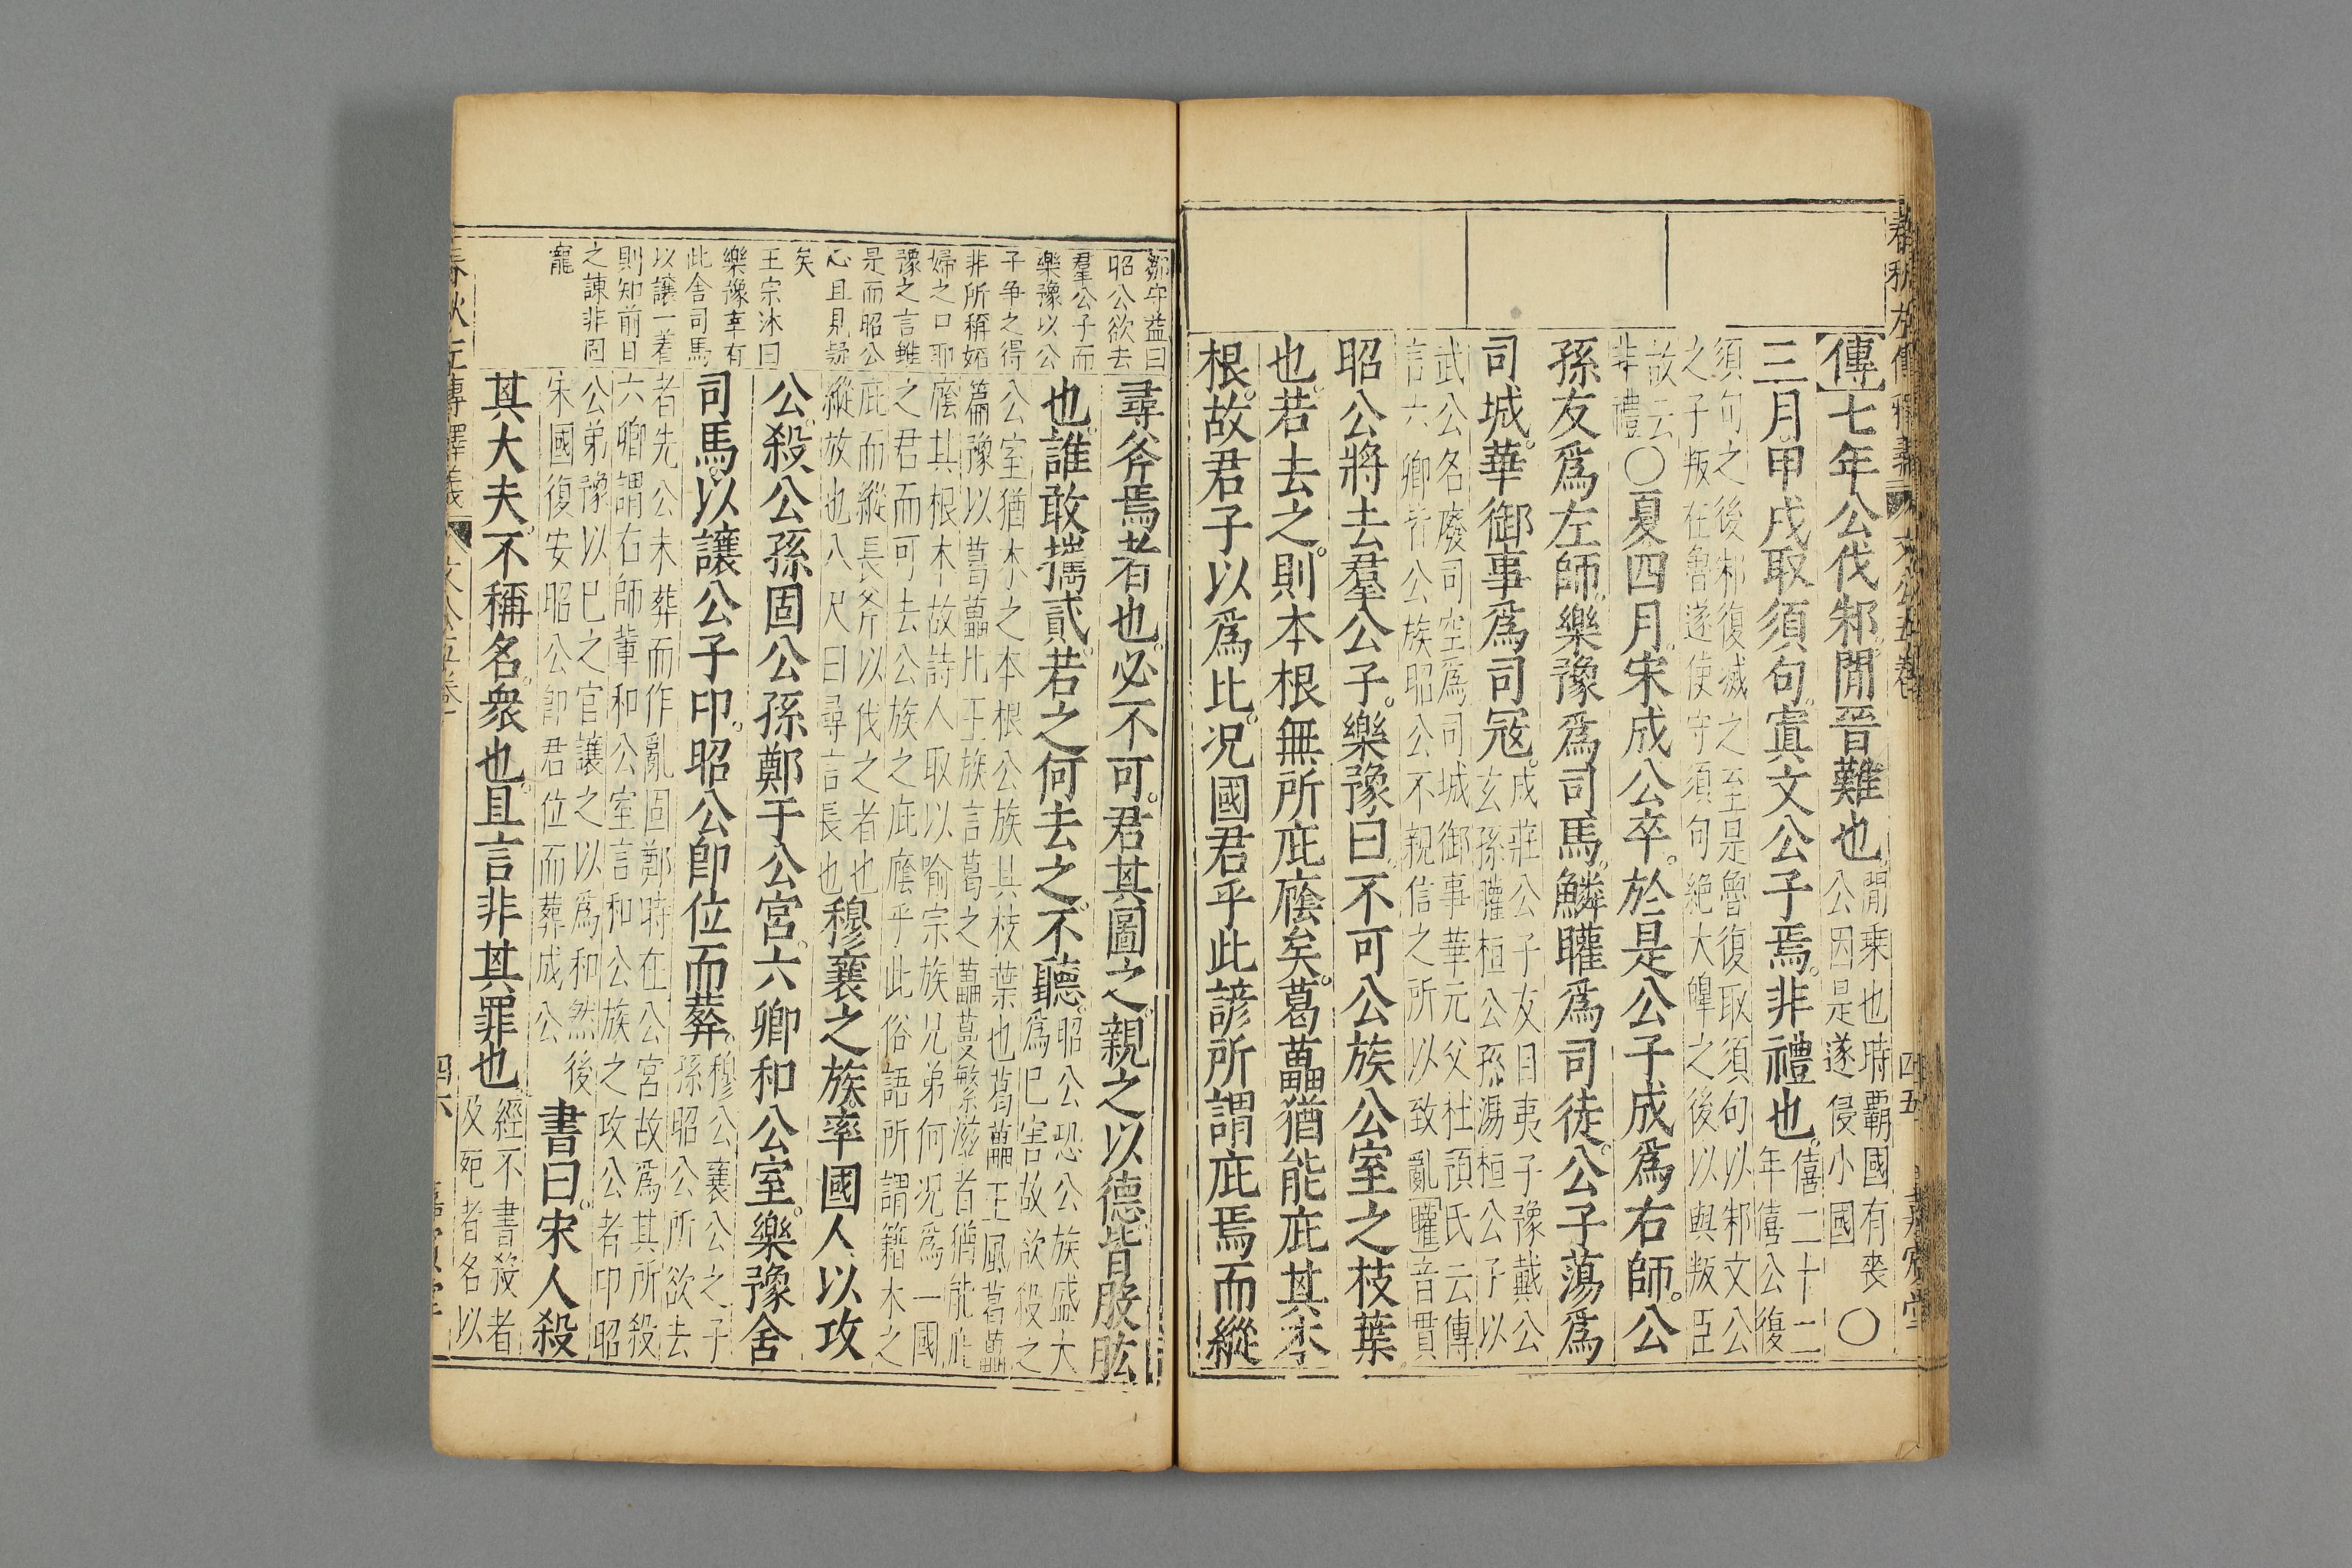 傳七年公伐邾閒晉難也閒乘也時霸國有喪公因是遂侵小國○
三月甲戌取須句寘文公子焉非禮也僖二十二年僖公復
須句之後邾復滅之至是魯復取須句以邾文公之子叛在魯遂使守須句絶大皥之後以與叛臣
故云非禮○夏四月宋成公卒於是公子成爲右師公
孫友爲左師樂豫爲司馬鱗矔爲司徒公子蕩爲
司城華御事爲司冦成莊公子友目夷子豫戴公玄孫矔桓公孫湯桓公子以
武公名廢司空爲司城御事華元父杜預氏云傳言六卿皆公族昭公不親信之所以致亂矔音貫
昭公將去羣公子樂豫曰不可公族公室之枝葉
也若去之則本根無所庇廕矣葛藟猶能庇其本
根故君子以爲比况國君乎此諺所謂庇焉而縱
尋斧焉者也必不可君其圖之親之以德皆股肱
也誰敢攜貳若之何去之不聽昭公恐公族盛大爲巳害故欲殺之
公室猶木之本根公族其枝葉也葛藟王風葛藟篇豫以葛藟比王族言葛之藟蔓繁滋者猶能庇
廕其根本故詩人取以喻宗族兄弟何况爲一國之君而可去公族之庇廕乎此俗語所謂籍木之
庇而縱長斧以伐之者也縱放也八尺曰尋言長也穆襄之族率國人以攻
公殺公孫固公孫鄭于公宮六卿和公室樂豫舍
司馬以讓公子卬昭公卽位而葬穆公襄公之子孫昭公所欲去
者先公未葬而作亂固鄭時在公宮故爲其所殺六卿謂右師輩和公室言和公族之攻公者卬昭
公弟豫以巳之官讓之以爲和然後宋國復安昭公卽君位而葬成公書曰宋人殺
其大夫不稱名衆也且言非其罪也經不書殺者及死者名以
鄒守益曰
昭公欲去
羣公子而
樂豫以公
子争之得
非所稱姤
婦之口耶
豫之言雖
是而昭公
心且見疑
矣
王宗沐曰
樂豫幸有
此舍司馬
以讓一着
則知前日
之諌非固
寵